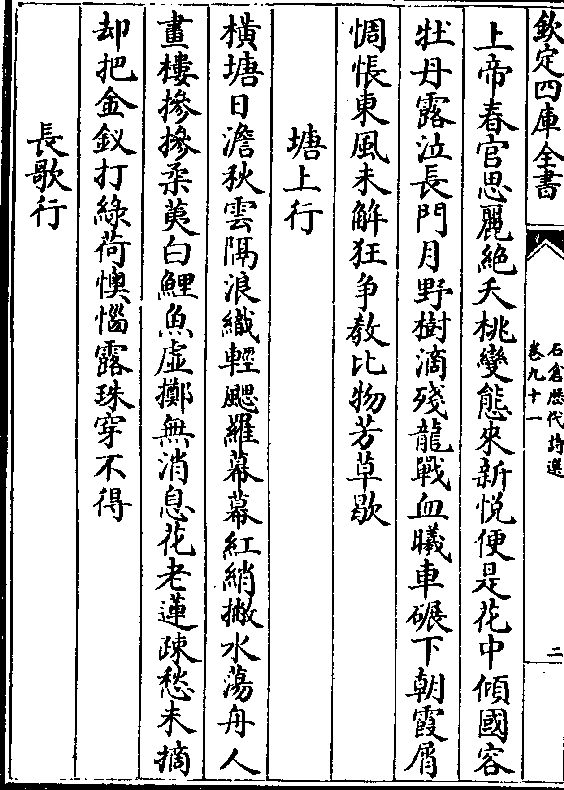 欽定四庫全書
石倉歴代詩選
卷九十一
二
上帝春官思麗絶夭桃變態來新悦便是花中傾國容
牡丹露泣長門月野樹滴殘龍戰血曦車碾下朝霞屑
惆悵東風未解狂争教比物芳草歇
塘上行
横塘日澹秋雲隔浪織輕颸羅幕幕紅綃撇水蕩舟人
畫樓摻摻柔荑白鯉魚虛擲無消息花老蓮疎愁未摘
却把金釵打綠荷懊惱露珠穿不得
長歌行